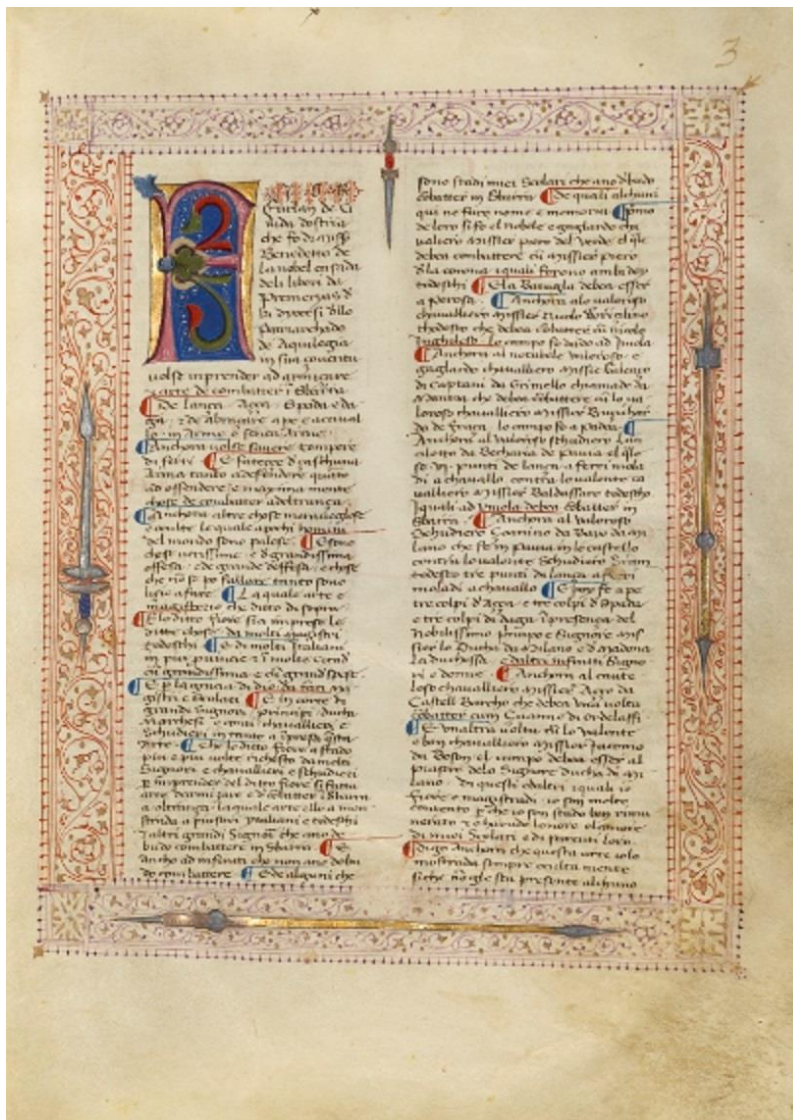 3
Furlan de Ci
uida dostria
che fo di miss
Benedetto de
la nobel casada
deli liberi da
Premeryas d
la dyocesi dllo
Patriarchado
de Aquilegia
in sua
uolse inprender ad armiçare
e arte de combatter i sbarra
De lança Aça Spada e da
ga e de abraçare a pe e acaual
lo in arme e sença arme
Anchora uolse sauere tempere
di ferri E fateççe d caschuna
Arma tanto adefendere quanto
ad offendere e maxima mente
chose de combatter adoltrança
Anchora altre chose merauegliose
e oculte le quale apochi homini
del mondo sono palese E sono
chose uerissime e d grandissima
offesa e de grande deffesa e chose
che no se po fallare tanto sono
La quale arte e
magisterio che ditto di sopra
E lo ditto Fiore sia impreso le
ditte chose da molti magistri
todeschi E di molti Italiani
in piu prouincie e i molte Citad
cu grandissima e cu grand spese
E p la gratia di dio da tanti ma
gistri e Scolari E in corte di
grande Signori principi duchi
Marchesi e conti chauallieri e
Schudieri in tanto a ipresa qsta
Arte Che lo ditto Fiore a stado
piu e piu uolte richesto da molti
Signori e chauallieri e schudieri
p imprender del ditto fiore si fatta
arte darmiçare e d cobatter i sbarra
a oltrança la quale arte ello a mon
strada a piusori ytaliani e todeschi
e altri grandi Signori che ano de
budo combattere in Sbarra E
ancho ad infiniti che non ano debu
do combattere E de alguni che
sono stadi miei Scolari che ano dbudo
cobatter in Sbarra De quali alchuni
qui ne farò nome e memoria Como
de loro si fo el nobele e gagliardo cha
ualiero Missier piero del Verde el qle
debea combattere cu missier piero
d la corona iquali forono ambi doy
todeschi E la Bataglia debea esser
a Perosa Anchora alo ualoroso
chaualliero Missier Nicolo
thodesco che debea cobatter cu nicolo
Inghileso lo campo fo dado ad Imola
Anchora al notabele ualoroso e
gagliardo chaualliero Missier Galeaço
di Captani da Grimello chiamado da
Mantoa che debea combattere cu lo ua
loroso chaualliero Missier Buçichar
do de Fraça lo campo fo a padoa
Anchora al ualoroso schudiero Lan
çilotto da Becharia de Pauia el qle
fe punti de lança a ferri mola
di a chauallo contra lo ualente ca
ualliero Missier Baldassaro todescho
Iquali ad ymola debea cobatter in
Sbarra Anchora al ualoroso
Schudiero Çoanino da Bavo da mi
lano che fe in Pauia in lo castello
contra lo ualente Schudiero
todesco tre punti di lança a ferri
moladi a chauallo E poy fe a pe
tre colpi d Aça e tre colpi d Spada
e tre colpi di daga i presença del
Nobilissimo principo e Signore Mis
sier lo Ducha da Milano e d madona
la duchessa e daltri infiniti Signo
ri e donne Anchora al caute
loso chaualliero Missier Aço da
Castell Barcho che debea una uolta
cobatter cum Çuanne di ordelaffi
E unaltra uolta cu lo ualente
e bon chaualliero Missier Jacomo
da Boson el campo debea esser al
piasere delo Signore Ducha de Mi
lano di questi e daltri i quali io
Fiore o magistradi io son molto
contento p che io son stado ben rimu
nerato e o habudo lonore e lamore
di miei Scolari e di parenti loro
Digo Anchora che questa arte io lo
mostrada sempre oculta mente
siche non gle sta presente alchuno